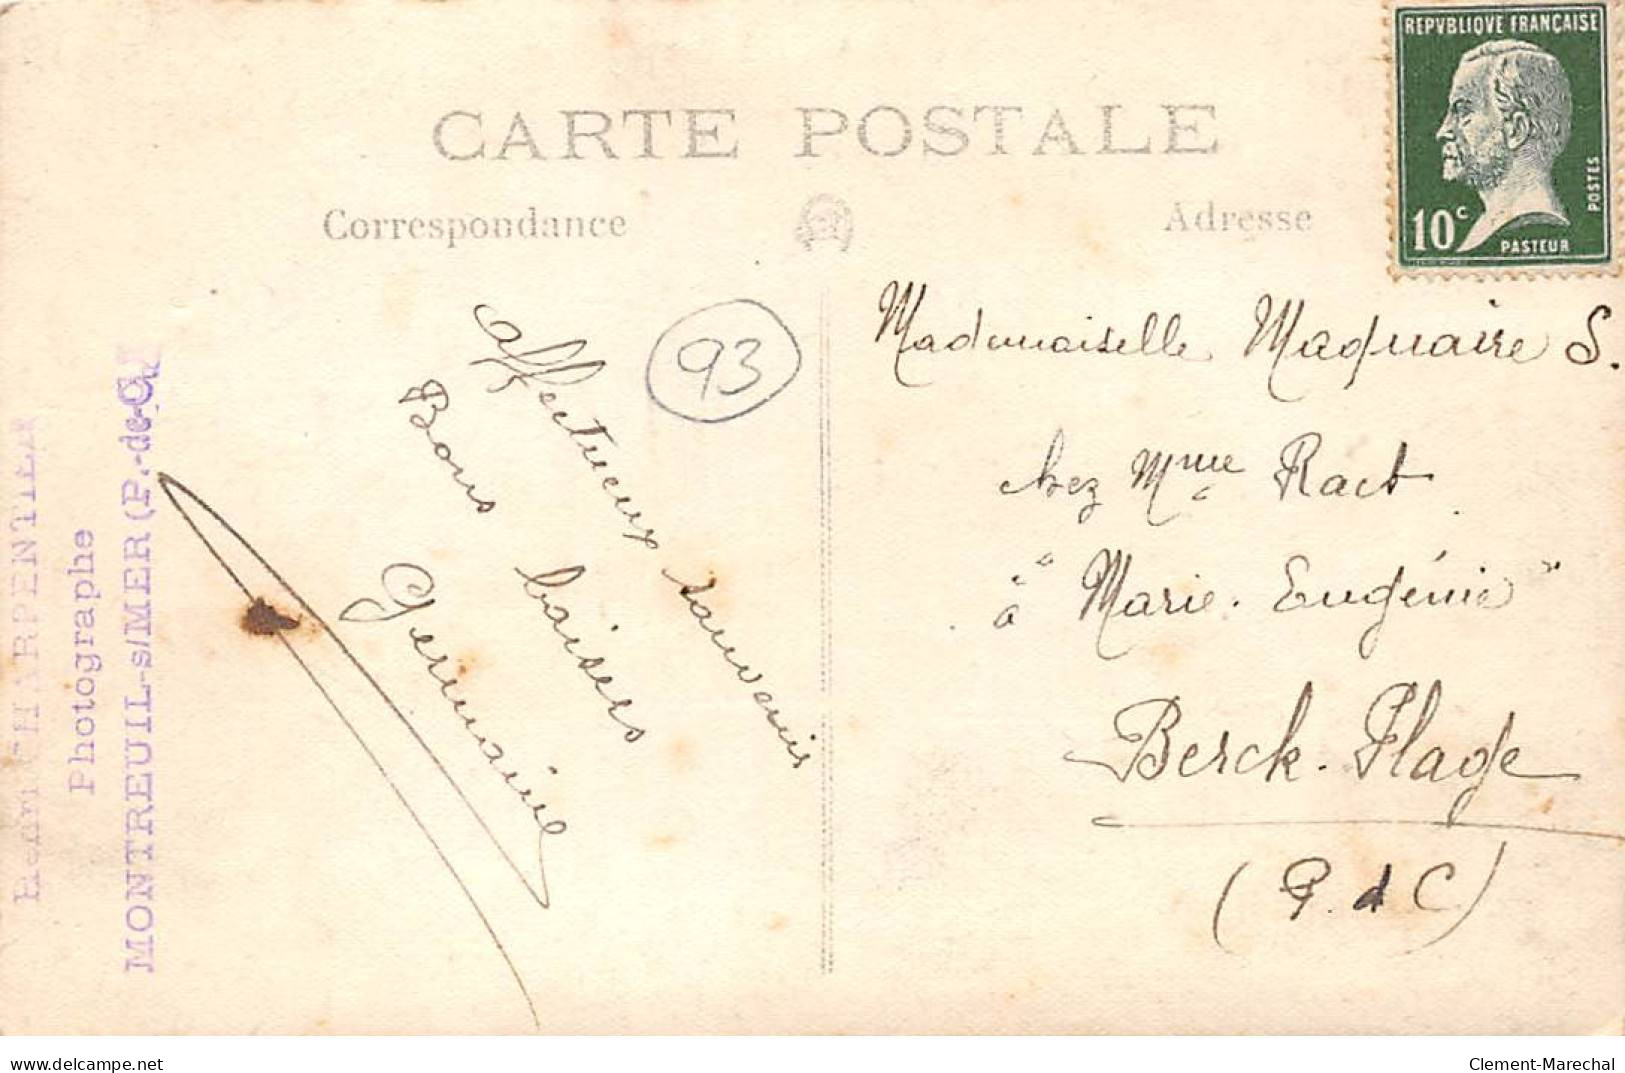 REPVBLIQVE FRANÇAISE
POSTES
10c
PASTEUR
CARTE POSTALE
Correspondance
Adresse
93
affectueux souvenir
Bons baisers
Germaine
Mademoiselle Maquaire S.
chez Mme Ract
à "Marie-Eugénie"
Berck-Plage
(P. d C)
CHARPENTIER
Photographe
MONTREUIL-s/MER (P.-de-C.)
delcampe.net
Clement-Marechal